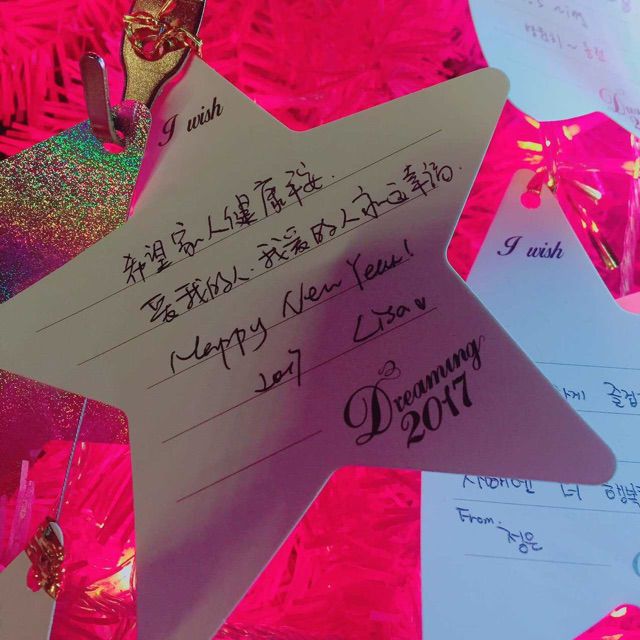 I wish
希望家人健康平安.
爱我的人.我爱的人永远幸福.
Happy New Year!
2017 Lisa♥
Dreaming
2017
I wish
게 즐겁
새해엔 더 행복
From.
정은